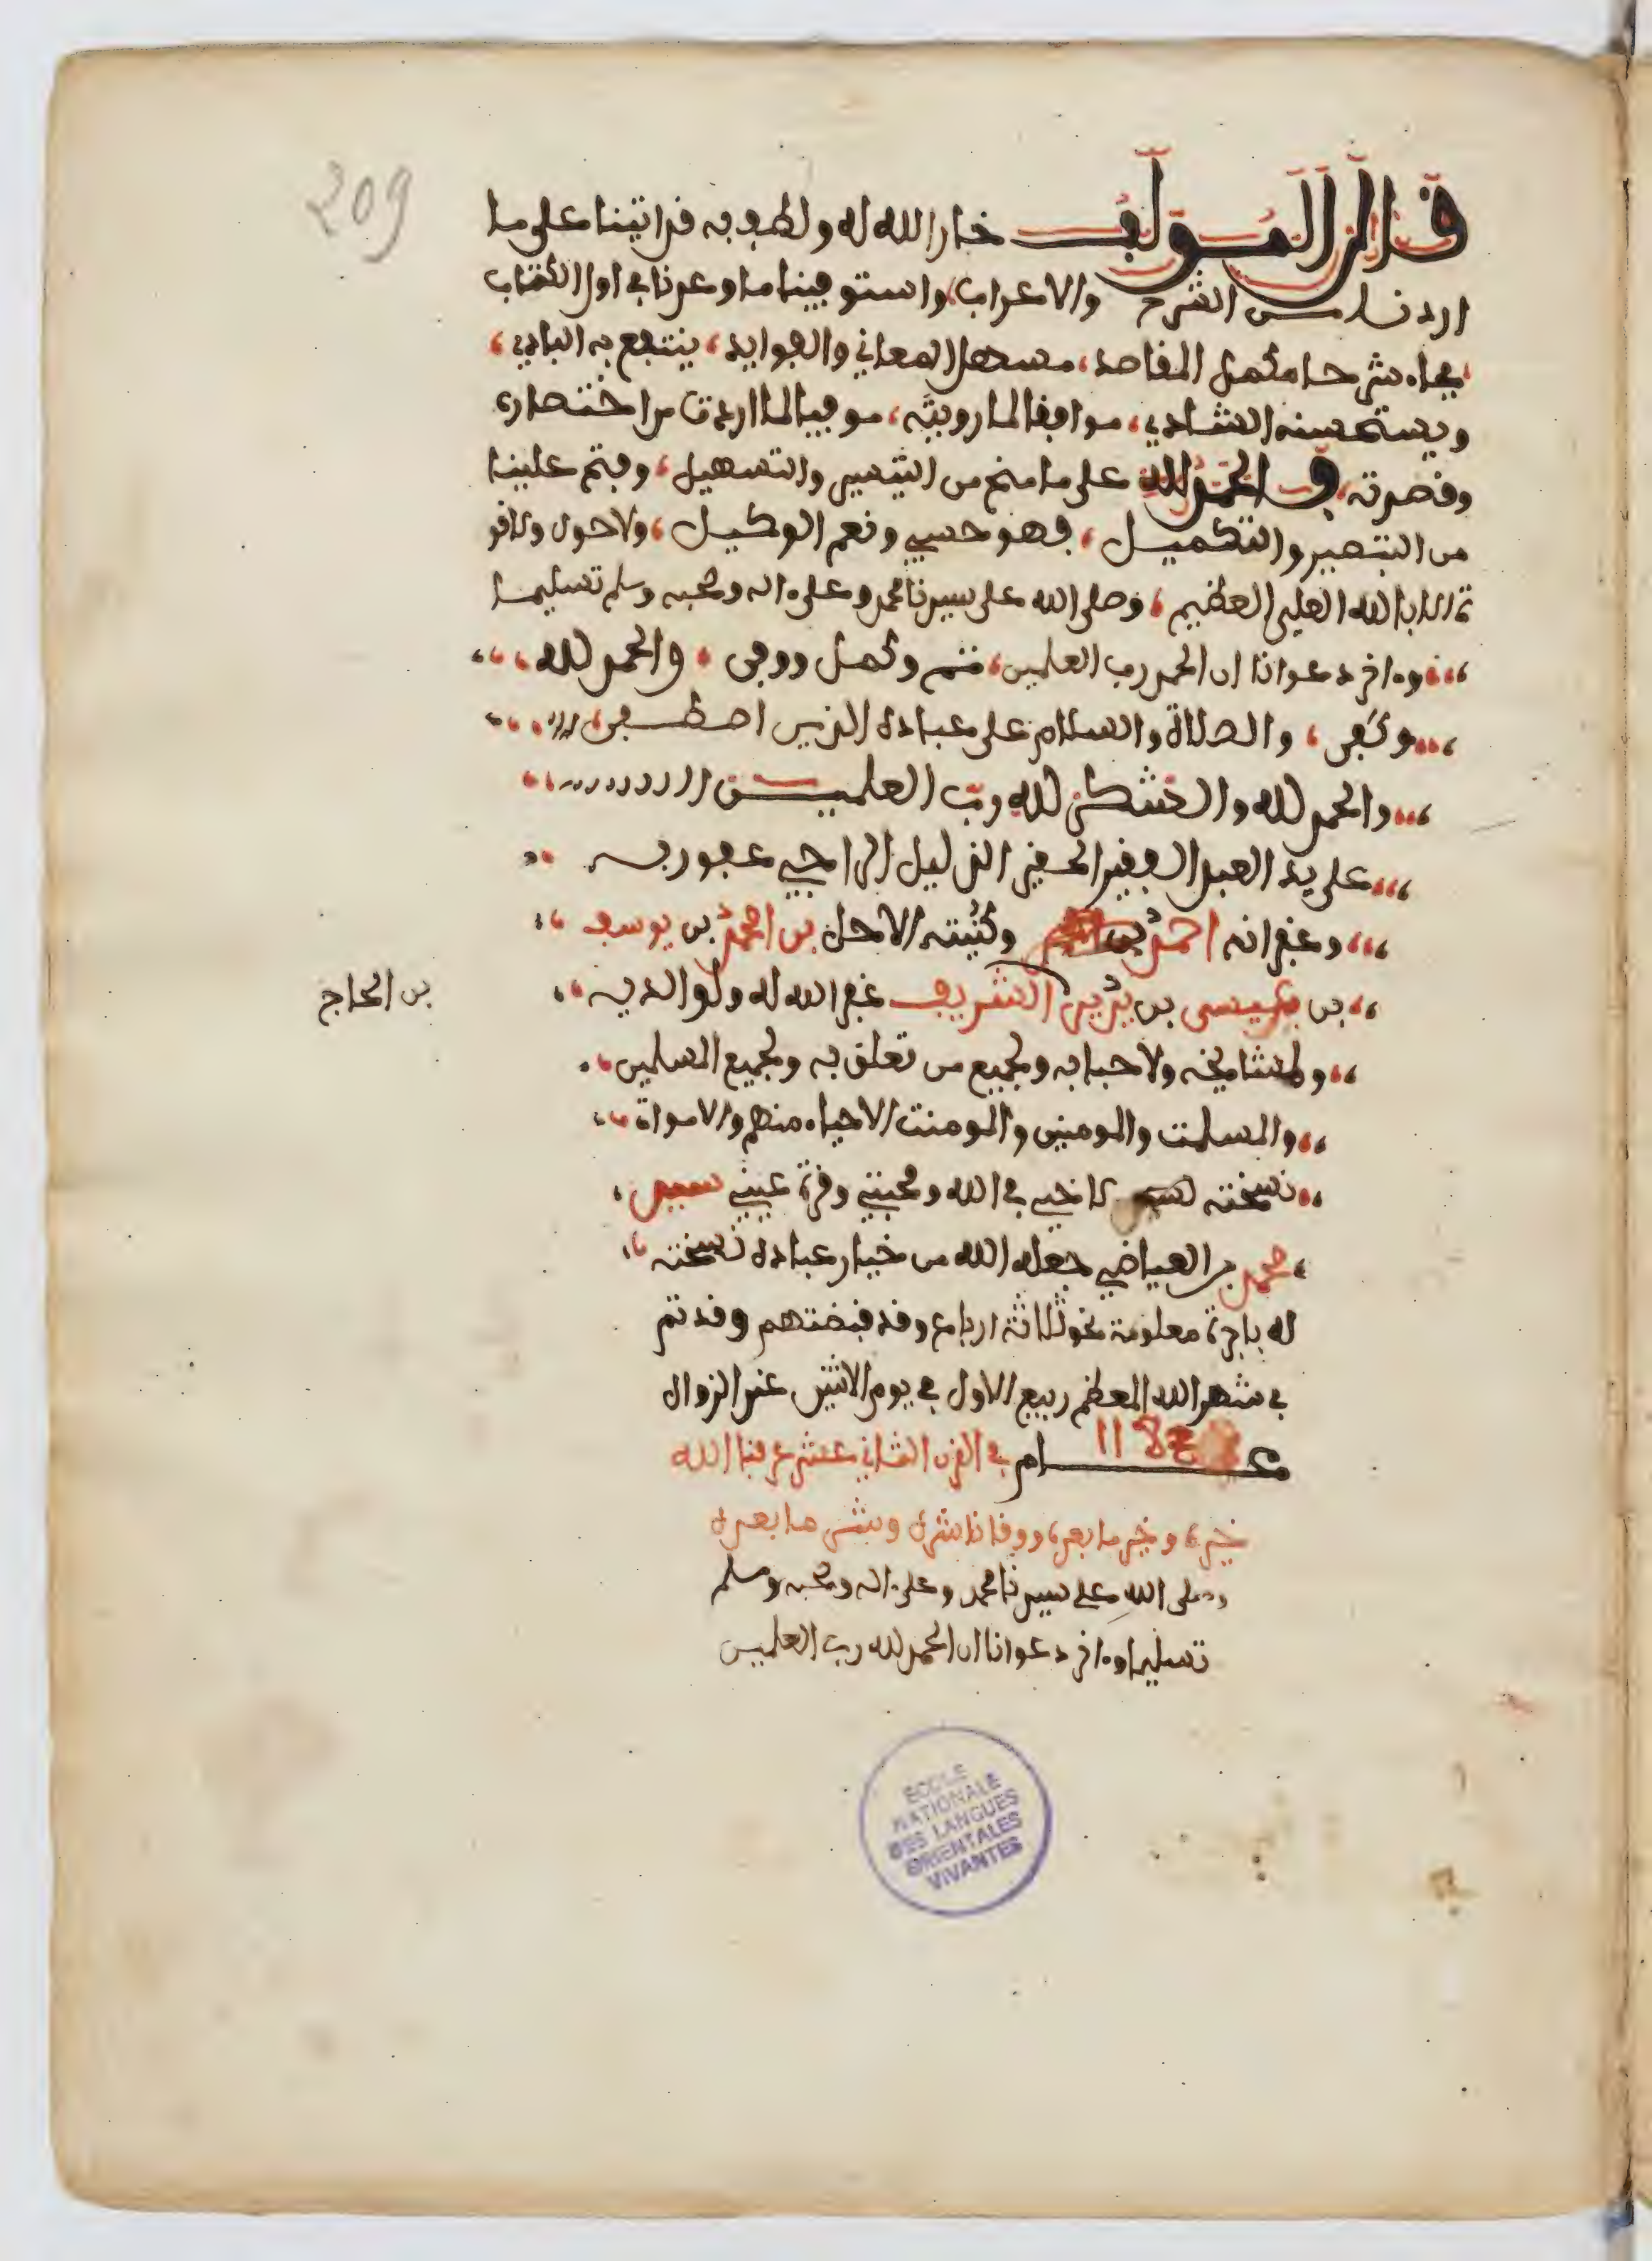 209
قال المولف خار الله له ولطف به قد اتينا على ما
اردنا من الشرح والاعراب، واستوفينا ما وعدنا في اول الكتاب
فجاء شرحا مكمل المقاصد، مسهل المعاني والفوايد، ينتفع به البادي،
ويستحسنه الشادي، موافقا لما رويته، موفيا لما اردت من اختصاري
وقصدته، والحمد لله على ما منح من التيسير والتسهيل، وفتح علينا
من التبصير والتكميل، فهو حسبي ونعم الوكيل، ولا حول ولا قو
ة الا بالله العلي العظيم، وصلى الله على سيدنا محمد وعلى ءاله وصحبه وسلم تسليما
وءاخر دعوانا ان الحمد رب العلمين، تم وكمل ووفى، والحمد لله،
وكفى، والصلاة والسلام على عباده الذين اصطفى،
والحمد لله والشكر لله رب العلمين
على يد العبد الفقير الحقير الذليل الراجي عفو ربه
وغفرانه احمد بن وكنيته الاكحل بن احمد بن يوسف
بن عيسى بن الشريف غفر الله له ولوالديه
بن الحاج
ولمشايخه ولاحبابه ولجميع من تعلق به ولجميع المسلمين
والمسلمت والمومنين والمومنت الاحياء منهم والاموات
نسخته لاخي في الله ومحبتي وقرة عيني سيدي
محمد بن العياضي جعله الله من خيار عباده نسخته
له باجرة معلومة نحو ثلاثة ارباع وقد قبضتهم وقد تم
في شهر الله المعظم ربيع الاول في يوم الاثنين عند الزوال
عام في القرن الثاني عشر عرفنا الله
خيره وخير ما بعده ووقانا شره وشر ما بعده
وصلى الله على سيدنا محمد وعلى ءاله وصحبه وسلم
تسليما وءاخر دعوانا ان الحمد لله رب العلمين
ECOLE
NATIONALE
DES LANGUES
ORIENTALES
VIVANTES